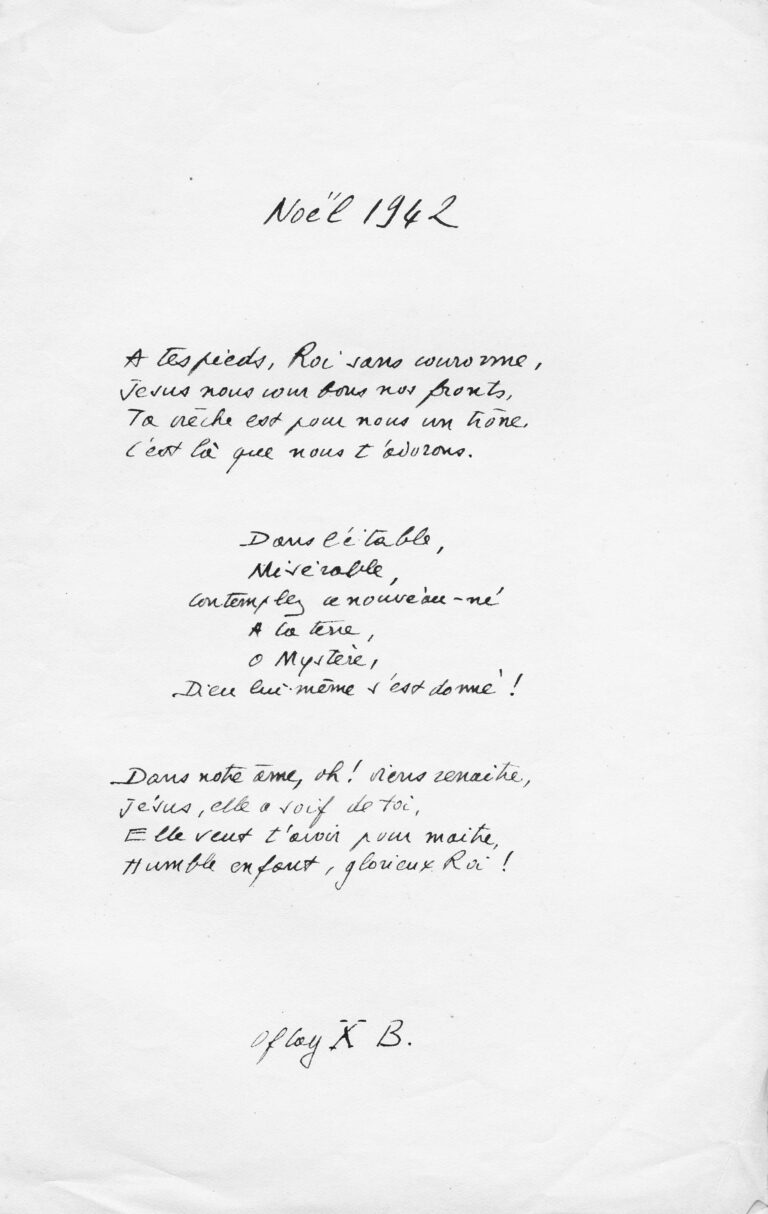 Noël 1942
A tes pieds, Roi sans couronne,
Jésus nous courbons nos fronts,
Ta crèche est pour nous un trône,
C'est là que nous t'adorons.
Dans l'étable,
Misérable,
Contemplez ce nouveau-né
A la terre,
O Mystère,
Dieu lui-même s'est donné !
Dans notre âme, oh ! viens renaitre,
Jésus, elle a soif de toi,
Elle veut t'avoir pour maitre,
Humble enfant, glorieux Roi !
Oflag X B.